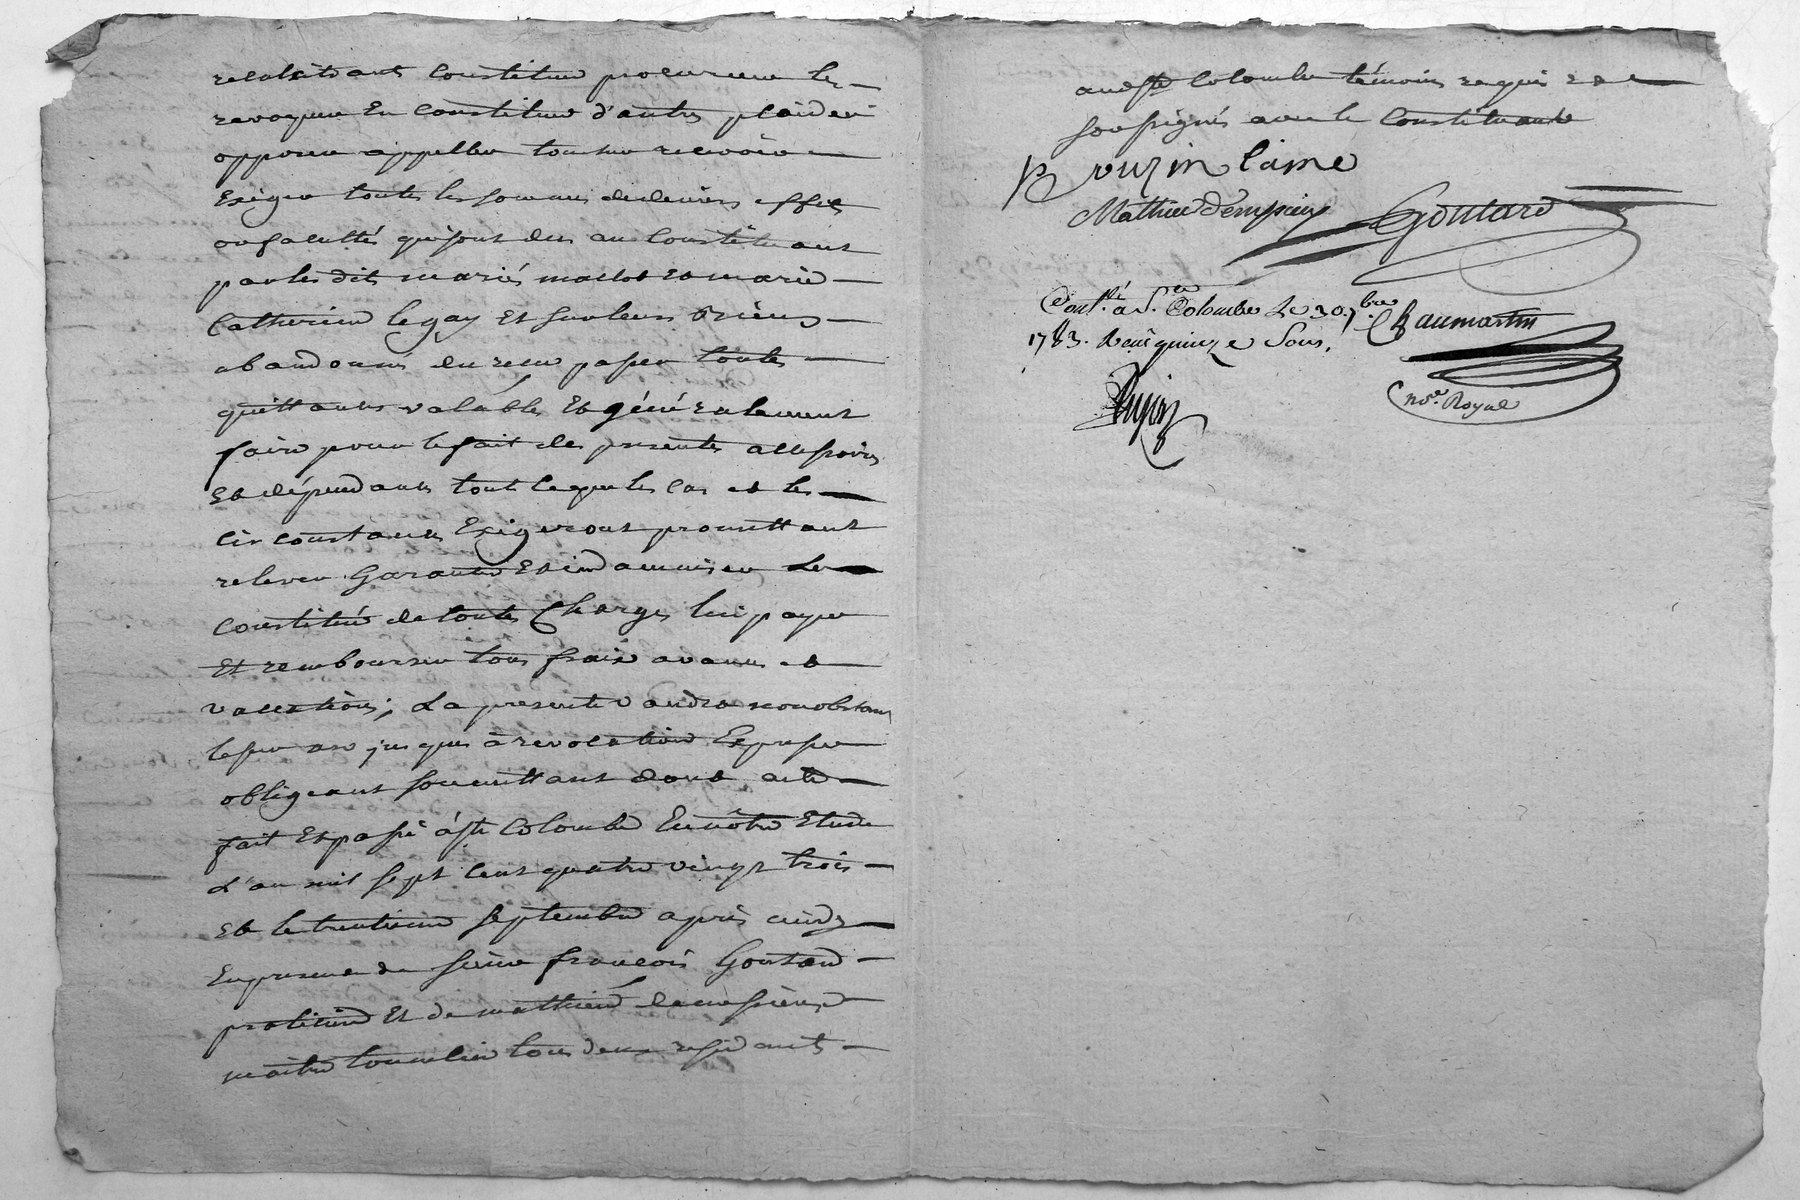 recalsitrant constituer procureur les
revoquer En constituer d'autres plaider
opposer appeller toucher recevoir
Exiger toutes les sommes de deniers effets
ou facultés qui sont dus au Constituant
par les dits mariés mallot et marie
Catherine legay Et sur leurs Biens
abandonnés du recu passer toutes
quittances valables Et généralement
faire pour le fait des presentes accessoires
Et dépendances tout ce que les cas et les
circonstances Exigeront promettant
relever Garantir Et indamniser Le
constitué de toutes Charges lui payer
Et rembourser tous frais avances et
vacations; La presente vaudra nonobstant
jusques à revocation Expresse
obligeant soumettant dont acte
fait Et passé à ste Colombe En nôtre Etude
L'an mil sept cent quatre vingt trois
Et le trentieme septembre après midy
En presence de sieur françois Goutard
praticien Et de mathieu dempsieux
maitre tous deux residants
audt ste Colombe témoins requis et
soussignés avec le Constituant
ouzin l'ainé
Mathieu Dempsieux Goutard
Contlé. à Ste Colombe Le 30 7.bre Chaumartin
1783. Reçu quinze Sous.
nore. Royal